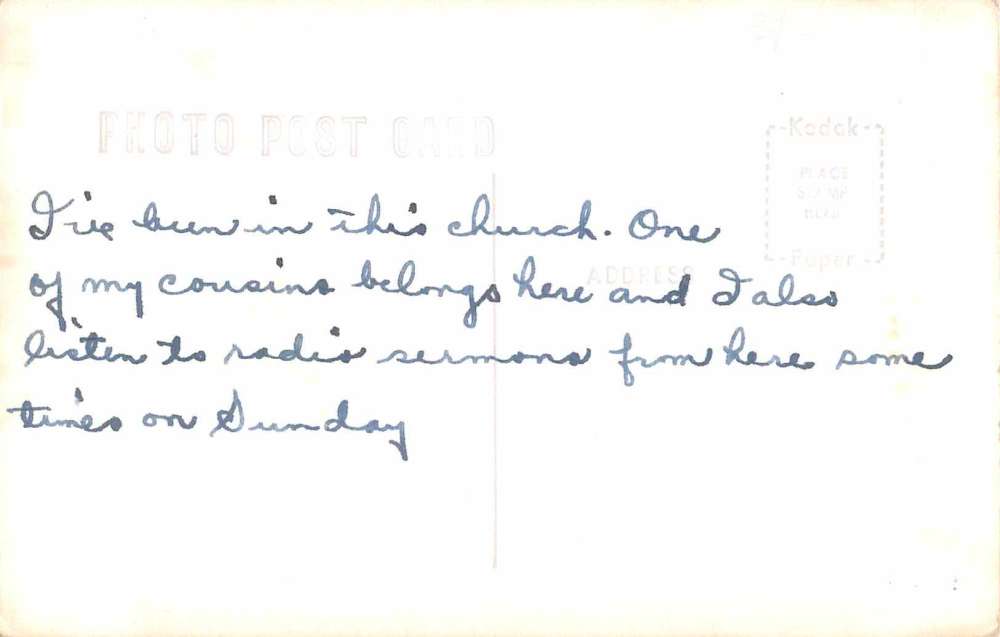 PHOTO POST CARD
-Kodak-
PLACE
STAMP
HERE
-Paper-
ADDRESS
I've been in this church. One
of my cousins belongs here and I also
listen to radio sermons from here some
times on Sunday